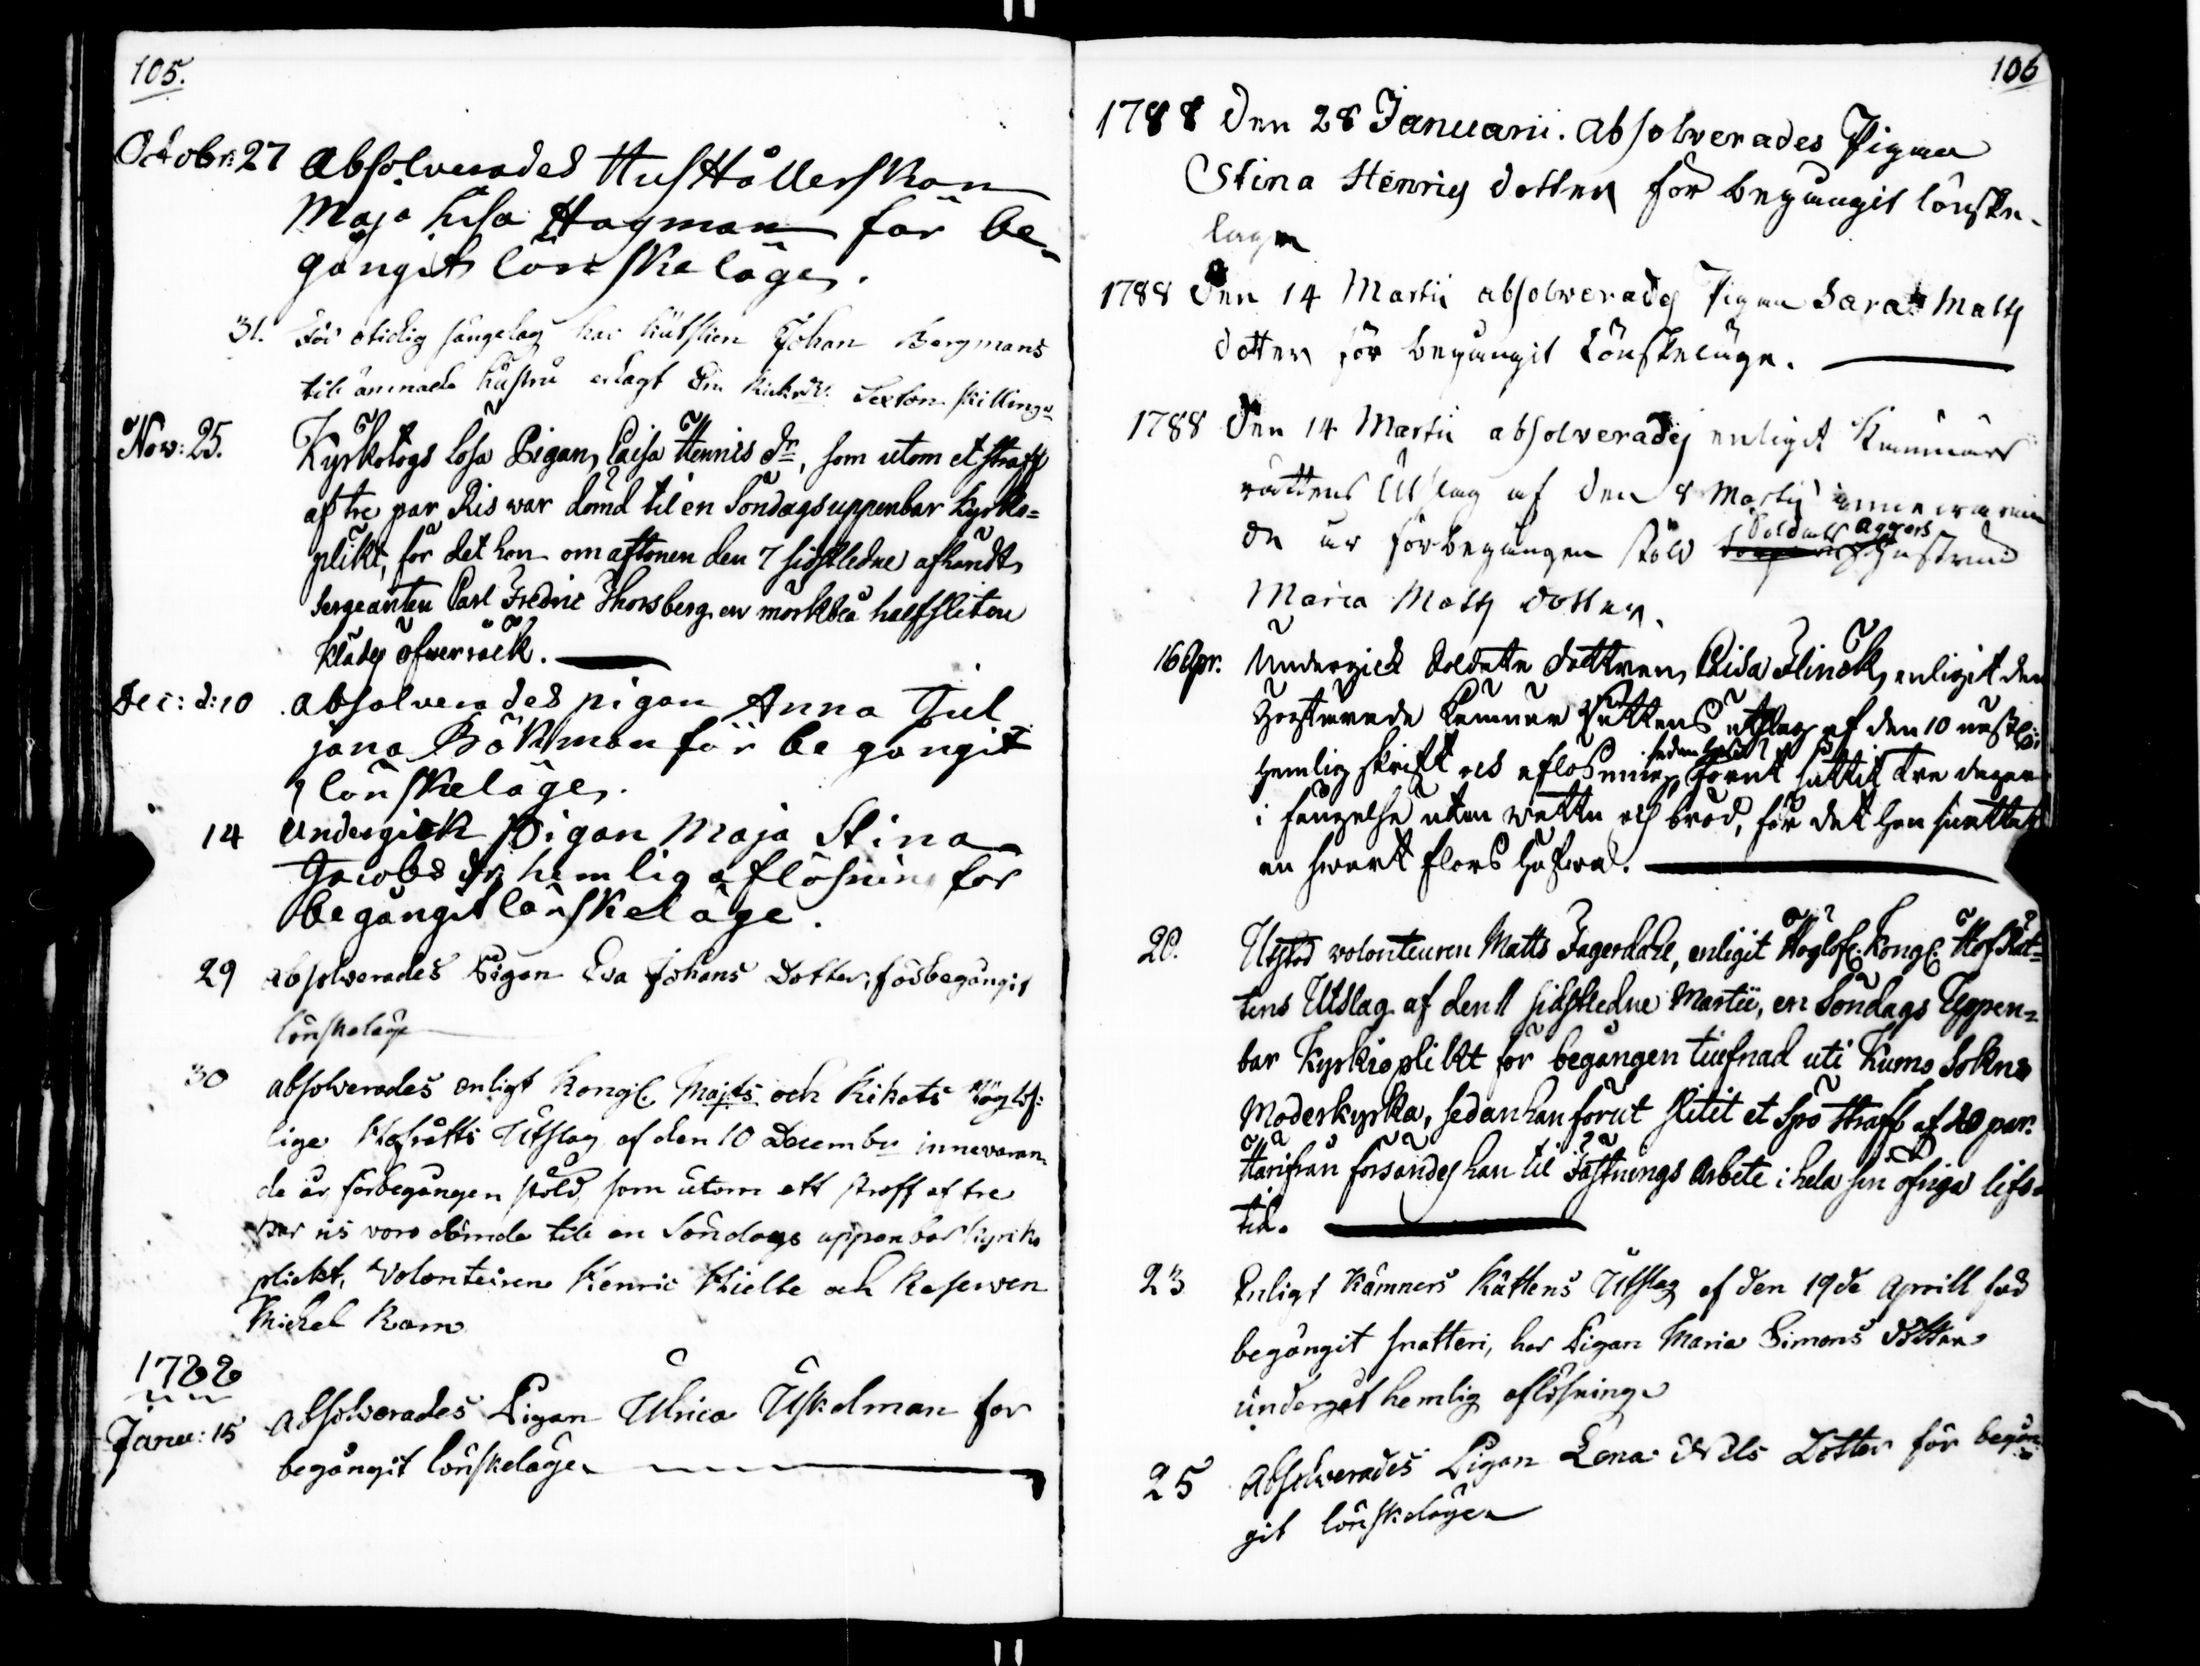 105.
Octobr: 27 Absolverades Hushållerskan
Maja Lisa Hagman för be-
gångit lönskeläge.
31. För otidig sängelag har Johan Bergmans
till ämnade hustru erlagt En Sexton skilling
Nov: 25. Kyrkotogs lösa Pigan, Caisa Henrics dr, som utom et straff
af tre par Ris war dömd til en Söndags uppenbar Kyrko=
plikt, för det hon om aftonen den 7 sidstledne afhändt
Sergeanten Carl Fredric Thorsberg en mörkblå halfsliten
klädes öfwerrock.
Dec: d: 10 absolverades pigan Anna Jul
jana Bökman för be gångit
lönskeläge.
14 undergick Pigan Maja Stina
Jacobs dr hemlig aflösning för
begångit lönskeläge.
29 absolverades Pigan Eva Johans Dotter, för begångit
lönskeläge
30 absolverades enligt Kongl. Majts och Rikets Höglof:
lige Hofrätts Utslag af den 10 December innevaran
de år, för begången stöld, som utom ett straff af tre
par ris voro dömde till en Söndags uppenbar kyrko
plickt, Volonteiren Henric och Reserven
Michel Ram
1788
Janu: 15 Absolverades Pigan Ulrica Uskelman för
begångit lönskeläge
106
1788 den 28 Januarii. absolverades Pigan
Stina Henrics dotter för begångit lönske-
läge
1788 den 14 Martii absolverades Pigan Sara Matts
dotter för begångit Lönskeläge.
1788 den 14 Martii absolverades enligit Kemnärs
rättens Utslag af den 8 Martij innewaran
de år för begången stöld Soldats Aggers Hustru
Maria Matts dotter.
16 Apr. Undergick Soldate dottren, Caisa Flinck, enligit den
Kemners Rättens utslag af den 10
hemlig skrift och aflösning, sedan hon förut suttit tre dagar
i fängelse uten watten och bröd, för det hon snattat
en swart flors
20. Utstod volonteuren Matts Fagerdahl, enligit Höglofl. Kongl. Hofrät=
tens Utslag af den 11 sidstledne Martii, en Söndags Uppen=
bar Kyrkioplikt för begången tiufnad uti Kumo Sokns
Moderkyrka, sedan han förut slitit et Spö straff af 40 par.
Härifrån försändes han til Fästnings Arbete i hela sin öfriga lifs=
tid.
23 Enligt Kämners Rättens Utslag af den 19de Aprill för
begångit snatteri, har Pigan Maria Simons dotter
undergåt hemlig aflösning
25 Absolverades Pigan Lena Nils Dotter för begån=
git lönskeläge